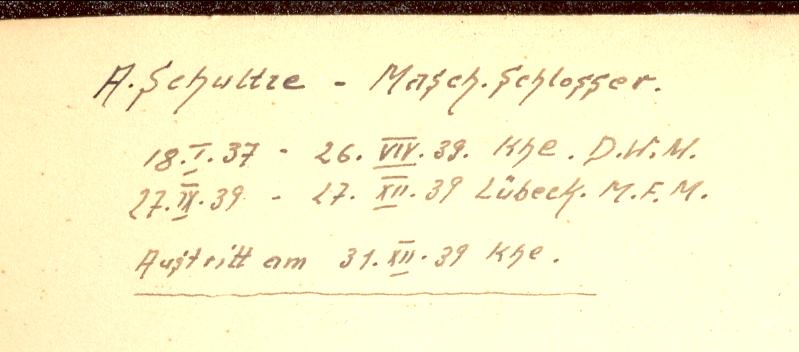 A. Schultze - Masch. Schlosser.
18. I. 37 - 26. VIV. 39. Khe. D.W.M.
27. IX. 39 - 27. XII. 39 Lübeck. M.F.M.
Austritt am 31. XII. 39 Khe.